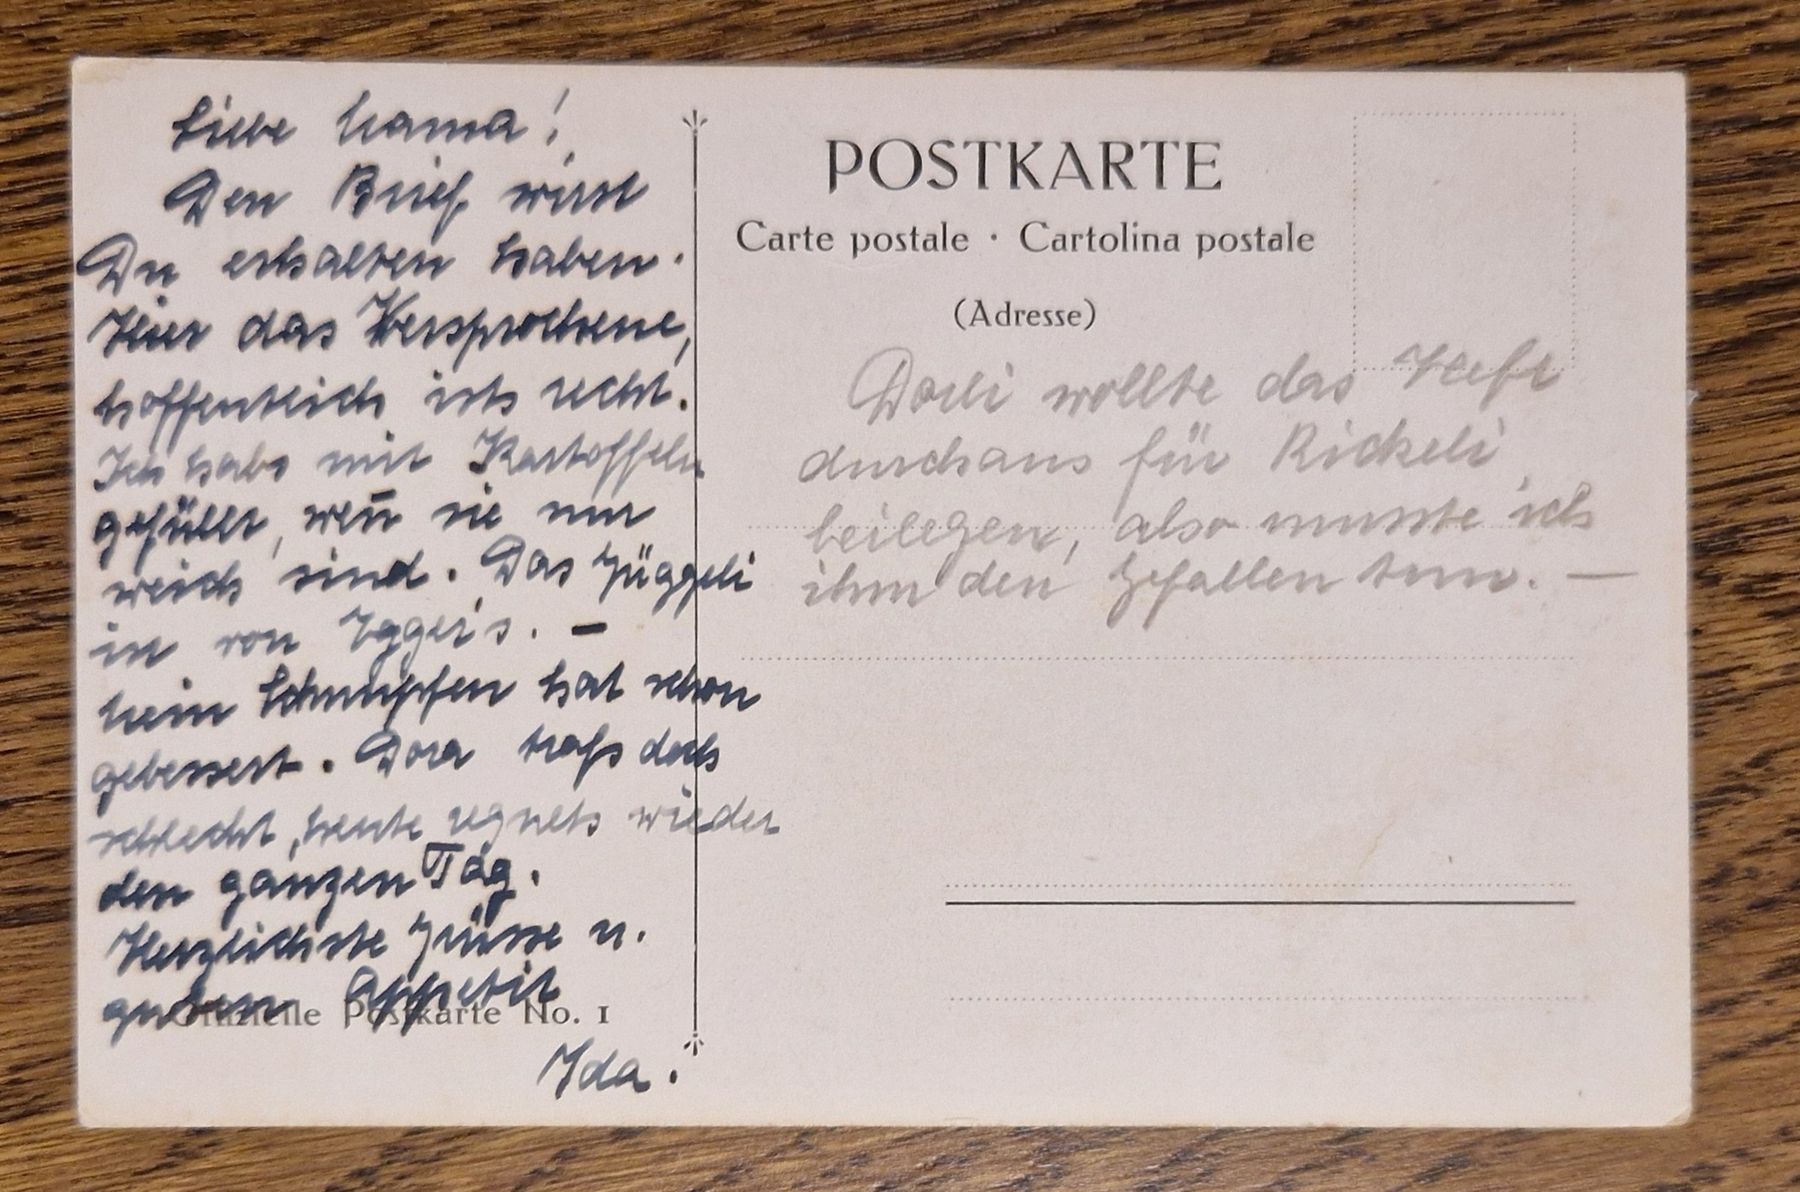 Liebe Mama!
Den Brief wirst
Du erhalten haben.
Hier das Versprochene,
hoffentlich ists recht.
Ich habs mit Kartoffeln
gefüllt, weñ sie nur
weich sind. Das Güggeli
ist von Eggei's. —
Mein Schnupfen hat schon
gebessert. Dora trafs doch
schlecht, heute regnets wieder
den ganzen Tag.
Herzlichste Grüsse u.
guten Appetit
Offizielle Postkarte No. 1
Ida.
POSTKARTE
Carte postale · Cartolina postale
(Adresse)
Dorli wollte das Heft
durchaus für Rickeli
beilegen, also musste ich
ihm den Gefallen tun. —